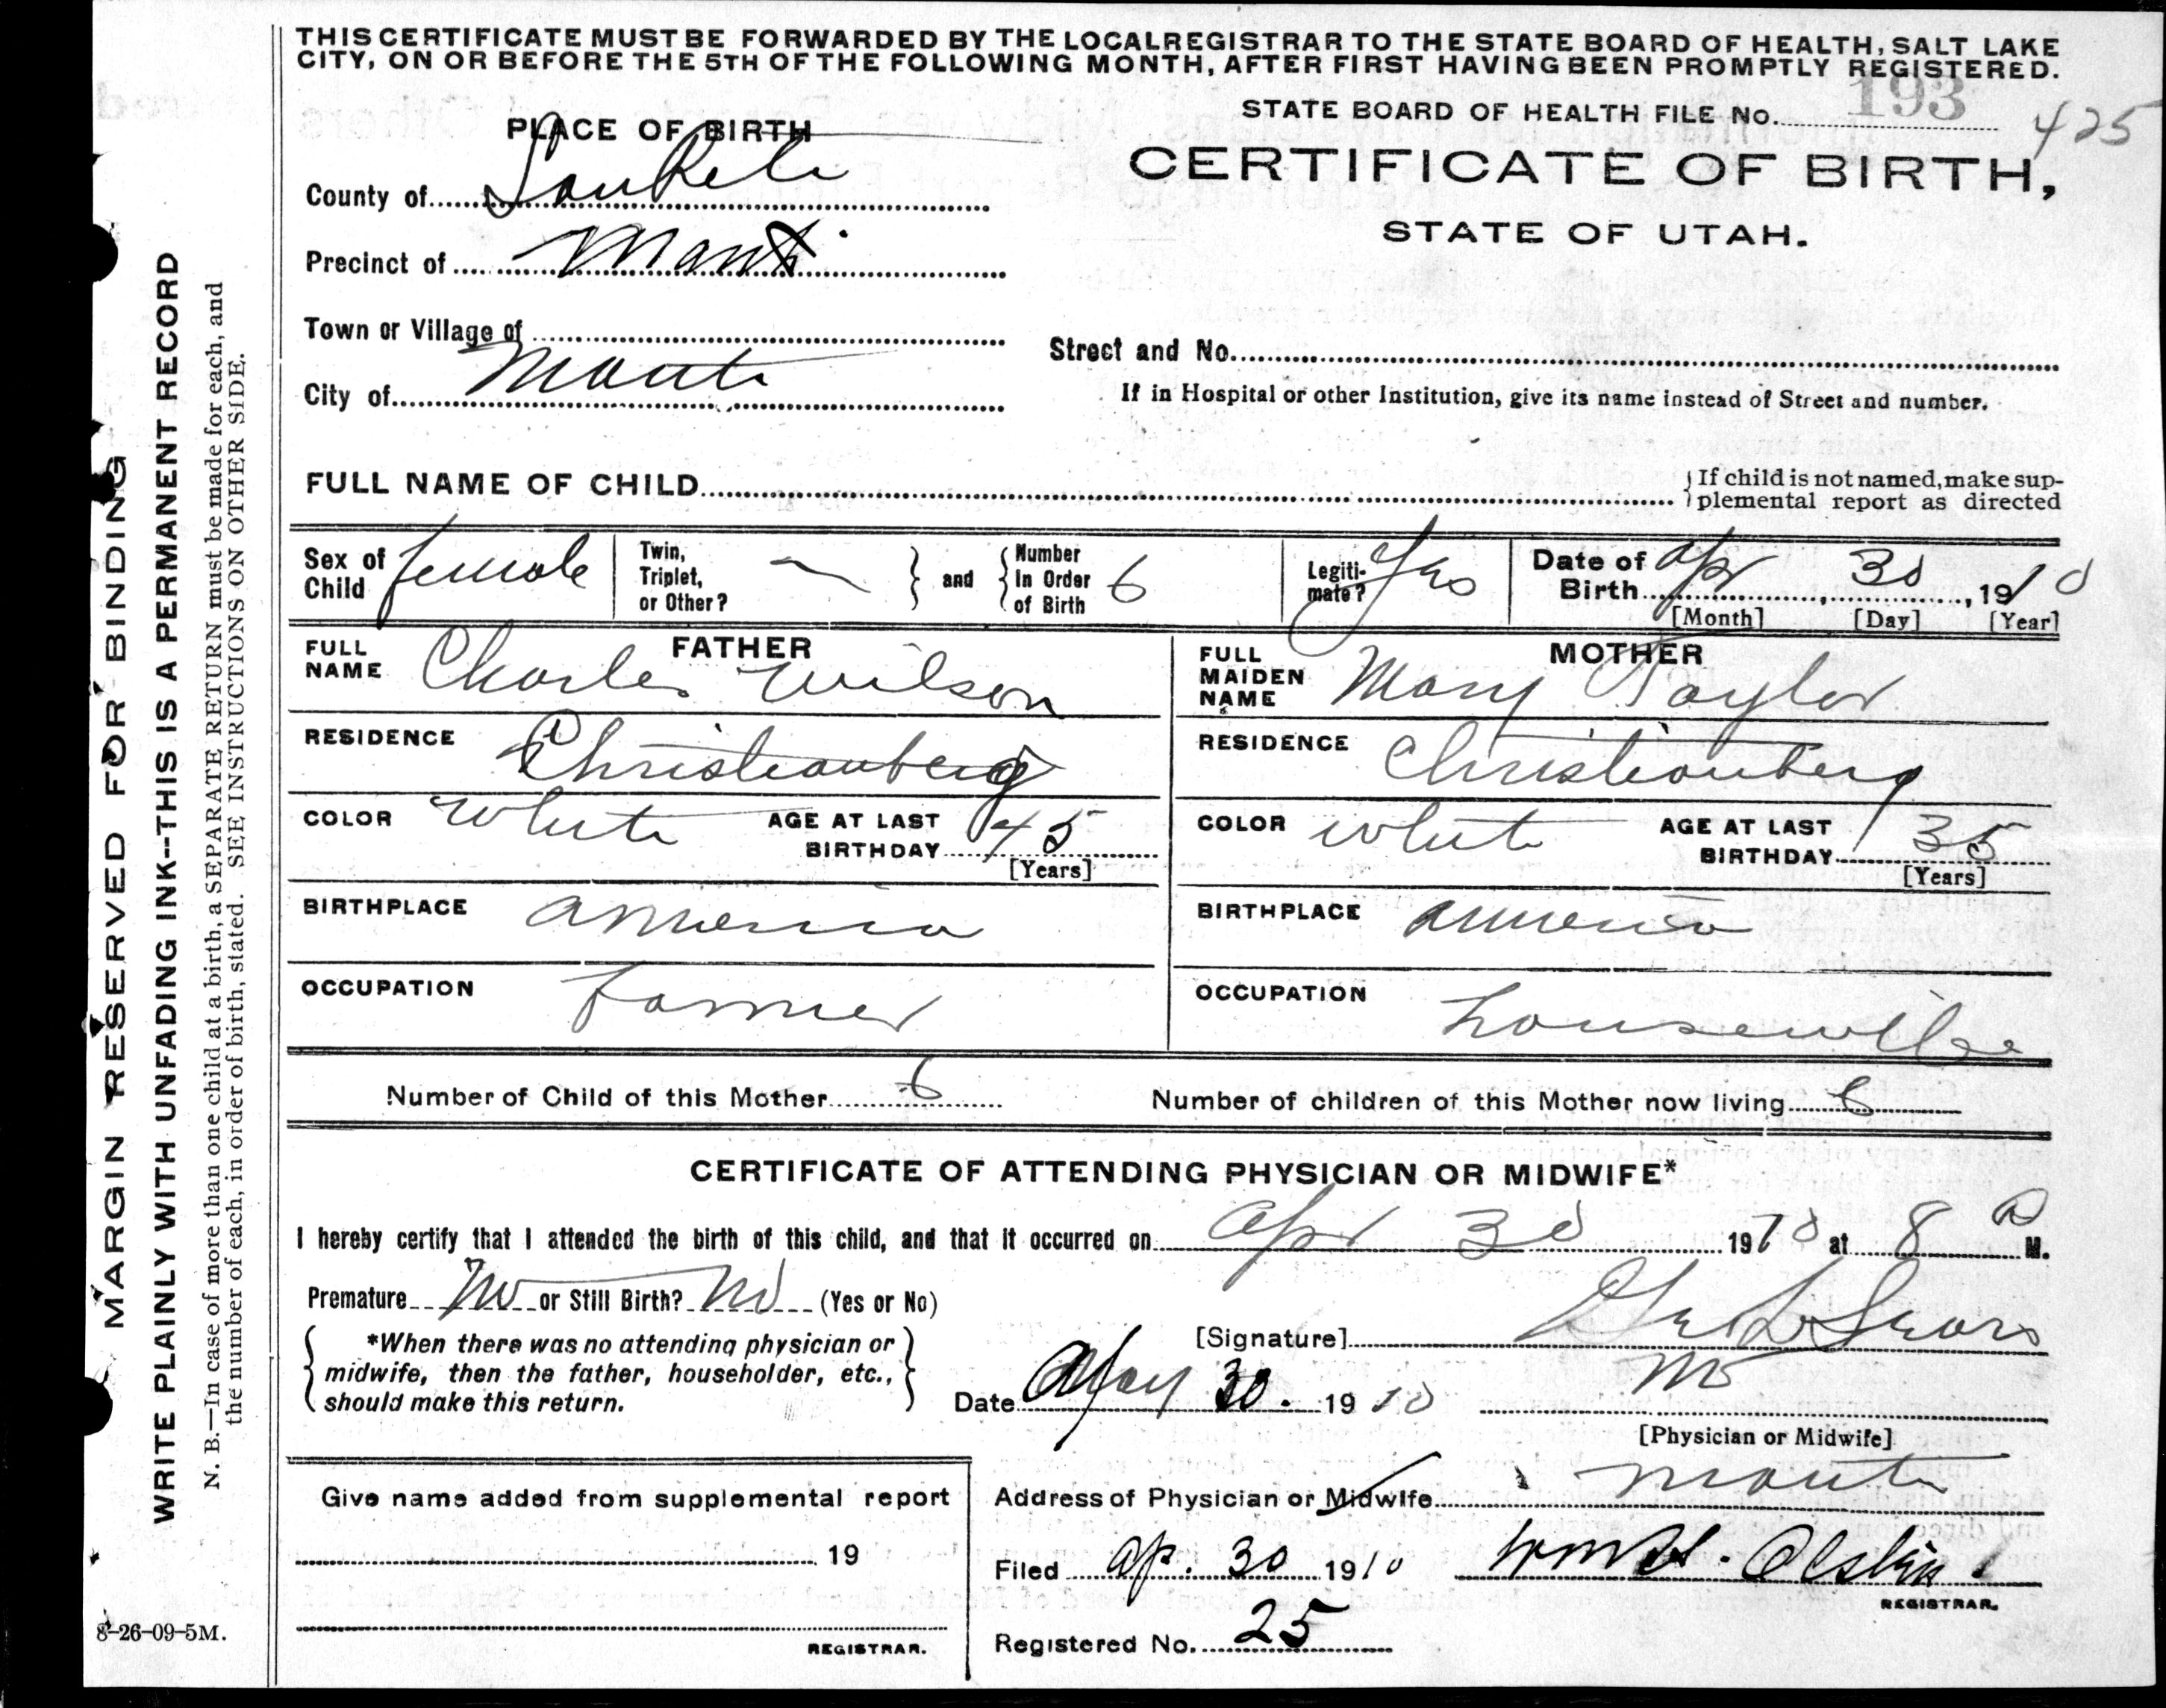 THIS CERTIFICATE MUST BE FORWARDED BY THE LOCAL REGISTRAR TO THE STATE BOARD OF HEALTH, SALT LAKE
CITY, ON OR BEFORE THE 5TH OF THE FOLLOWING MONTH, AFTER FIRST HAVING BEEN PROMPTLY REGISTERED.
STATE BOARD OF HEALTH FILE No. 193 425
PLACE OF BIRTH
CERTIFICATE OF BIRTH,
STATE OF UTAH.
County of SanPete
Precinct of Manti
Town or Village of
Street and No.
City of Manti
If in Hospital or other Institution, give its name instead of Street and number.
FULL NAME OF CHILD
If child is not named, make sup-
plemental report as directed
Sex of Child female
Twin, Triplet, or Other? —
and
Number In Order of Birth 6
Legiti-mate? Yes
Date of Birth Apr 30, 1910
[Month] [Day] [Year]
FATHER
FULL NAME Charles Wilson
RESIDENCE Christianberg
COLOR White AGE AT LAST BIRTHDAY 45
[Years]
BIRTHPLACE America
OCCUPATION Farmer
MOTHER
FULL MAIDEN NAME Mary Taylor
RESIDENCE Christianberg
COLOR White AGE AT LAST BIRTHDAY 35
[Years]
BIRTHPLACE America
OCCUPATION Housewife
Number of Child of this Mother 6 Number of children of this Mother now living 6
CERTIFICATE OF ATTENDING PHYSICIAN OR MIDWIFE*
I hereby certify that I attended the birth of this child, and that it occurred on Apr 30 1910 at 8 a M.
Premature No or Still Birth? No (Yes or No)
*When there was no attending physician or
midwife, then the father, householder, etc.,
should make this return.
[Signature] Geo L Sears
Date 30. 1910
MD
[Physician or Midwife]
Give name added from supplemental report
19
REGISTRAR.
Address of Physician or Midwife Manti
Filed Ap. 30 1910
REGISTRAR.
Registered No. 25
8-26-09-5M.
MARGIN RESERVED FOR BINDING
WRITE PLAINLY WITH UNFADING INK--THIS IS A PERMANENT RECORD
N. B.—In case of more than one child at a birth, a SEPARATE RETURN must be made for each, and
the number of each, in order of birth, stated. SEE INSTRUCTIONS ON OTHER SIDE.